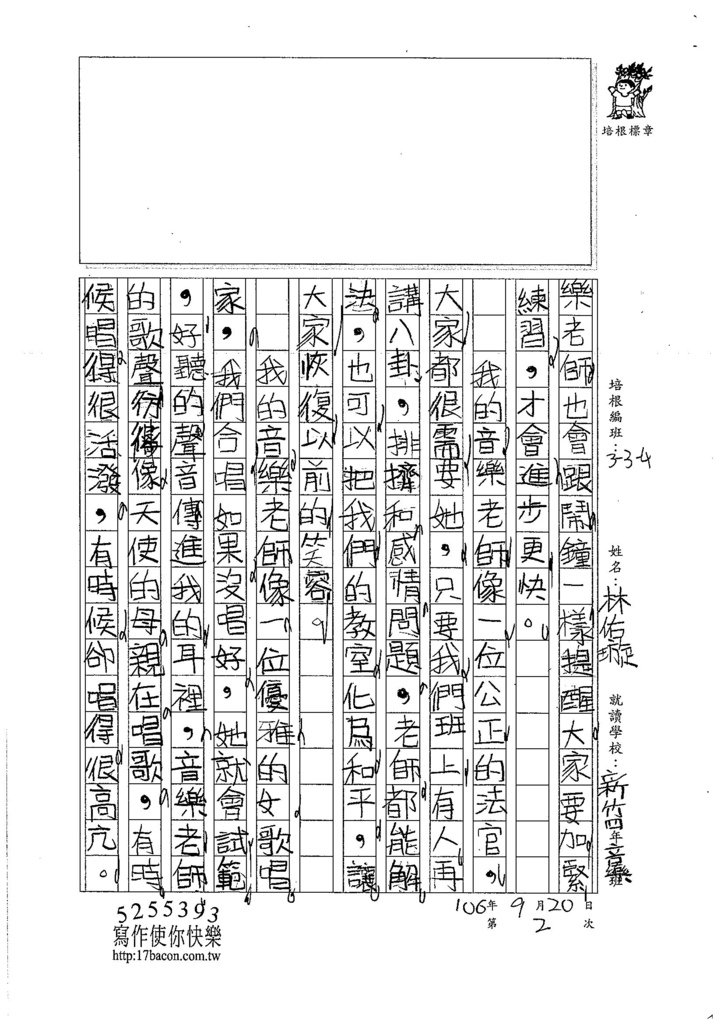 培根標章
培根編班：334
姓名：林佑璇
就讀學校：新竹四年音樂班
樂老師也會跟鬧鐘一樣提醒大家要加緊
練習，才會進步更快。
我的音樂老師像一位公正的法官，
大家都很需要她，只要我們班上有人再
講八卦，排擠和感情問題，老師都能解
決，也可以把我們的教室化為和平，讓
大家恢復以前的笑容。
我的音樂老師像一位優雅的女歌唱
家，我們合唱如果沒唱好，她就會試範
，好聽的聲音傳進我的耳裡，音樂老師
的歌聲彷彿像天使的母親在唱歌，有時
候唱得很活潑，有時候卻唱得很高亢。
106年9月20日
第2次
5255393
寫作使你快樂
http:17bacon.com.tw